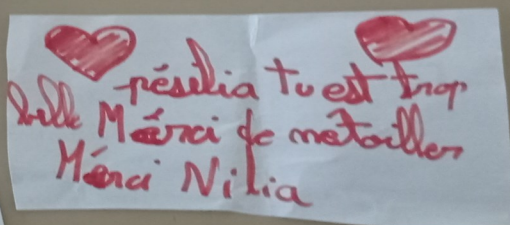 pésilia tu est trop
belle Mérci de métoiller
Mérci Nilia